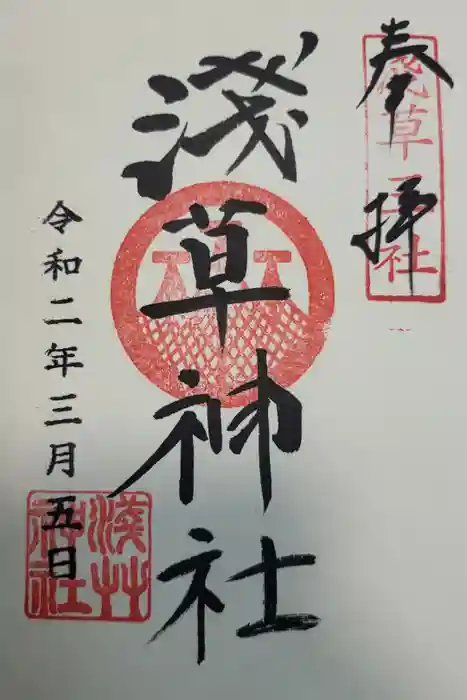 奉拝
淺草三社
淺草神社
令和二年三月五日
淺草神社